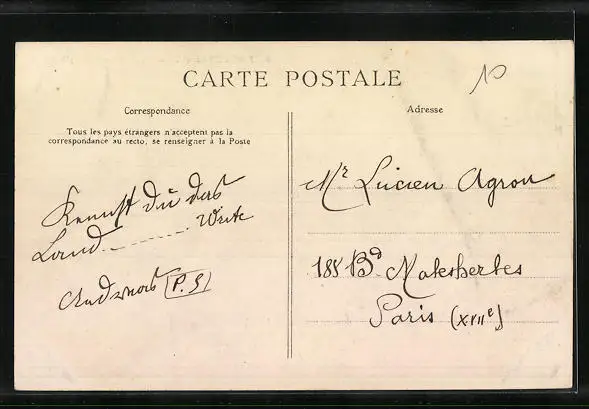 CARTE POSTALE
10
Correspondance
Tous les pays étrangers n'acceptent pas la
correspondance au recto, se renseigner à la Poste
Kennst du das
Land
(P.S)
Adresse
Mr Lucien Agron
185 Bd Malesherbes
Paris (XVIIe)